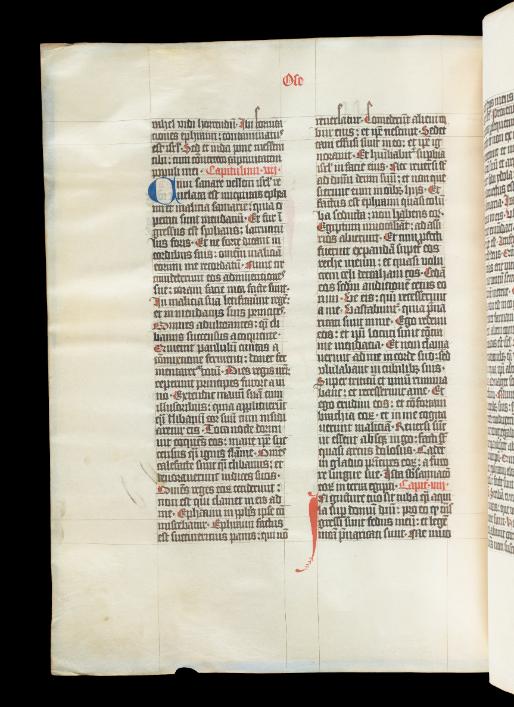 Ose
rahel vidi horrendū. Ibi fornica
tiones ephraim: contaminatus
est isrl. Sed et iuda pone messem
tibi: cum convertero captivitatem
populi mei. Capitulum vij.
Cum sanare vellem isrl re
velata est iniquitas ephra
im et malitia samarie: quia o
perati sunt mendaciū. Et fur in
gressus est spolians: latruncul
us foris. Et ne forte dicant in
cordibus suis: omnē malitiā
eorum me recordatū. Nunc cir
cumdederunt eos adinventiones
sue: coram facie mea facte sunt.
In malitia sua letificaverunt regē:
et in mendaciis suis principes.
Omnes adulterantes: quasi cli
banus succensus a coquente.
Quievit paululū civitas a
cōmixtione fermenti: donec fer
mentaret totū. Dies regis nrī:
ceperunt principes furere a vi
no. Extendit manū suā cum
illusoribus: quia applicuerūt
quasi clibanū cor suū cum insidi
aretur eis. Tota nocte dormi
vit coquens eos: mane ipse suc
census quasi ignis flāme. Omnes
calefacti sunt quasi clibanus: et
devoraverunt iudices suos.
Omnes reges eorum ceciderunt:
non est qui clamet in eis ad
me. Ephraim in populis ipse cō
miscebatur. Ephraim factus
est subcinericius panis: qui nō
reversatur. Comederūt alieni ro
bur eius: et ipse nescivit. Sed et
cani effusi sunt in eo: et ipse ig
noravit. Et humiliabitur supbia
isrl in facie eius. Nec reversi sūt
ad dnm deum suū: et non que
sierunt eum in omibus his. Et
factus est ephraim quasi colū
ba seducta: non habens cor.
Egiptum invocabant: ad assi
rios abierunt. Et cum profecti
fuerint expandā super eos
rethe meum: et quasi volu
crem celi detraham eos. Cedā
eos scdm auditionē cetus eo
rum. Ve eis: qm recesserunt
a me. Vastabunt: quia prva
ricati sunt in me. Ego redemi
eos: et ipsi locuti sunt cōtra
me mendacia. Et non clama
verunt ad me in corde suo: sed
ululabant in cubilibus suis.
Super triticū et vinū rumina
bant: et recesserunt a me. Et
ego erudivi eos: et cōfortavi
brachia eorum: et in me cogita
verunt malitiā. Reversi sūt
ut essent absque iugo: facti sūt
quasi arcus dolosus. Cadēt
in gladio principes eorum: a furo
re lingue sue. Ista subsānatio
eorum in terra egipti. Capit. viij.
In gutture tuo sit tuba quasi aqui
la sup domum dnī: pro eo qd trās
gressi sunt fedus meū: et legē
meā prevaricati sunt. Me invo